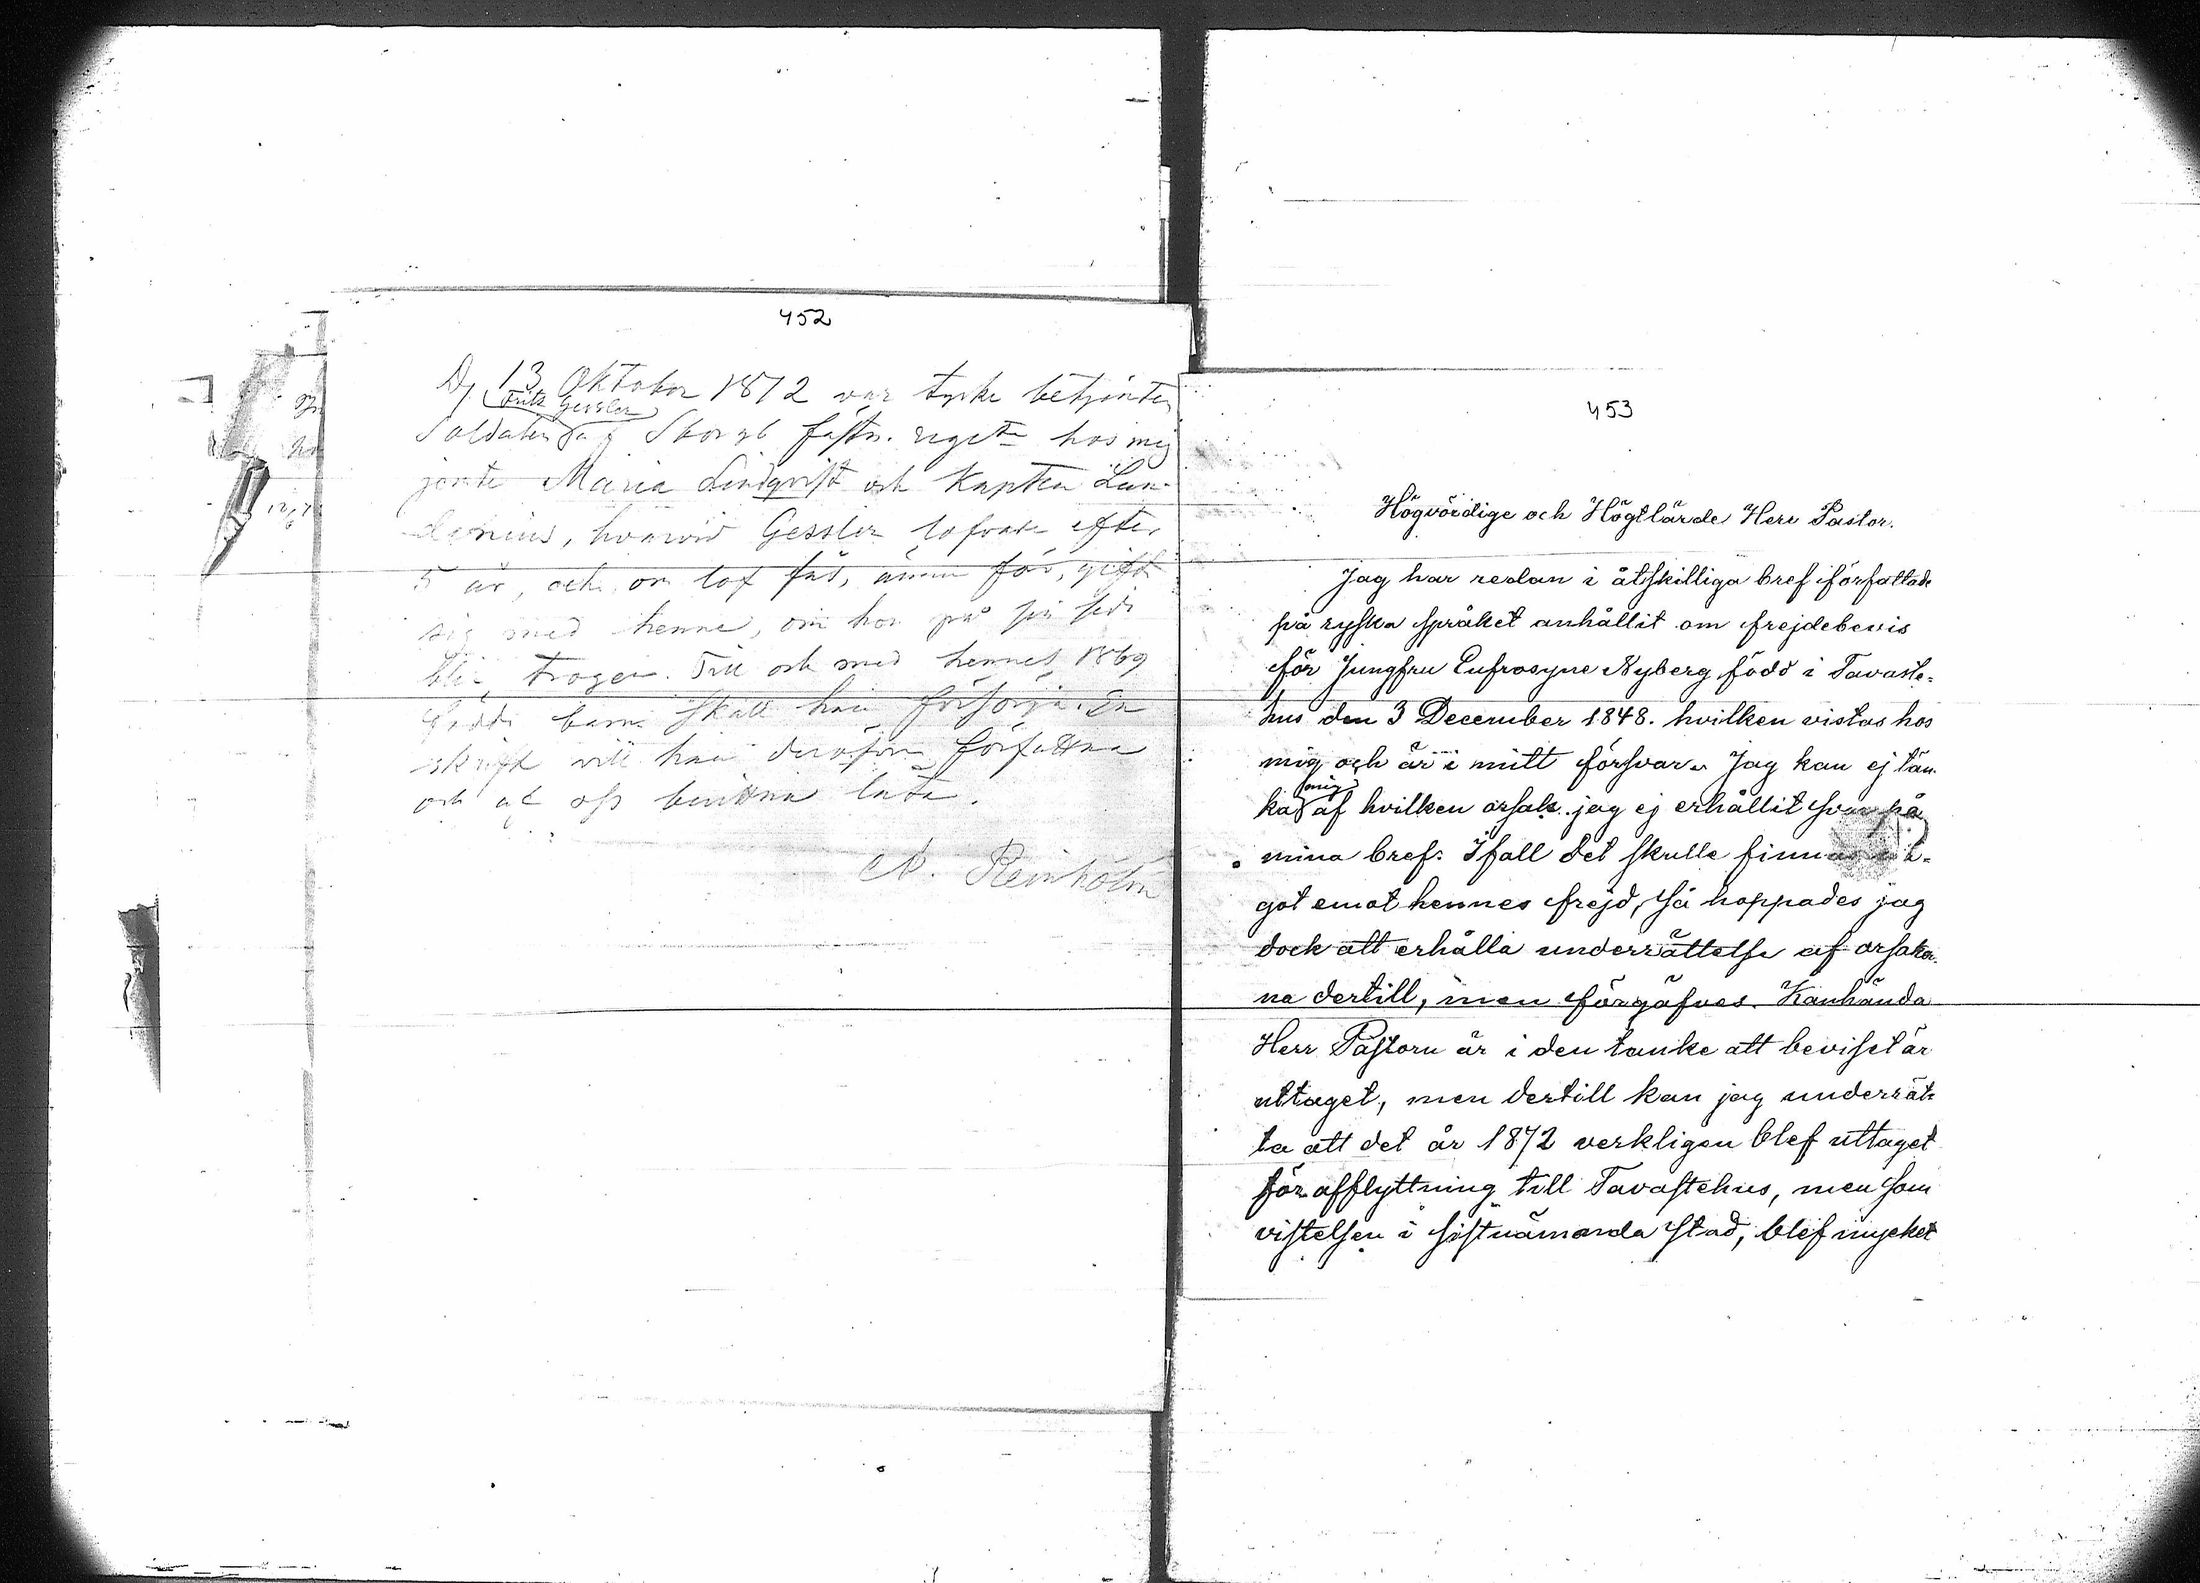 452
D. 13 Oktober 1872 var tyske betjenten
Fritz Gessler
Soldaten fästn. reg:te hos mig
jemte Maria Lindqvist och Kapten Lun-
denius, hvarvid Gessler lofvade efter
5 år, och om lof fås, ännu för, gifta
sig med henne, om hon på sin sida
blir trogen. Till och med hennes 1869
födda barn skall han försörja. En
skrift vill han deröfver författa
och af oss bevittna låta.
A. Reinholm
453
Högvördige och Högtlärde Herr Pastor.
Jag har redan i åtskilliga bref författade
på ryska språket anhållit om frejdebevis
för Jungfru Eufrosyne Nyberg född i Tavaste-
hus den 3 December 1848. hvilken vistas hos
mig och är i mitt försvar. Jag kan ej tän-
mig
ka af hvilken orsak jag ej erhållit svar på
mina bref. Ifall det skulle finnas nå-
got emot hennes frejd, så hoppades jag
dock att erhålla underrättelse af orsaker-
na dertill, men förgäfves. Kanhända
Herr Pastorn är i den tanke att beviset är
uttaget, men dertill kan jag underrät-
ta att det år 1872 verkligen blef uttaget
för afflyttning till Tavastehus, men som
vistelsen i sistnämnda stad, blef mycket